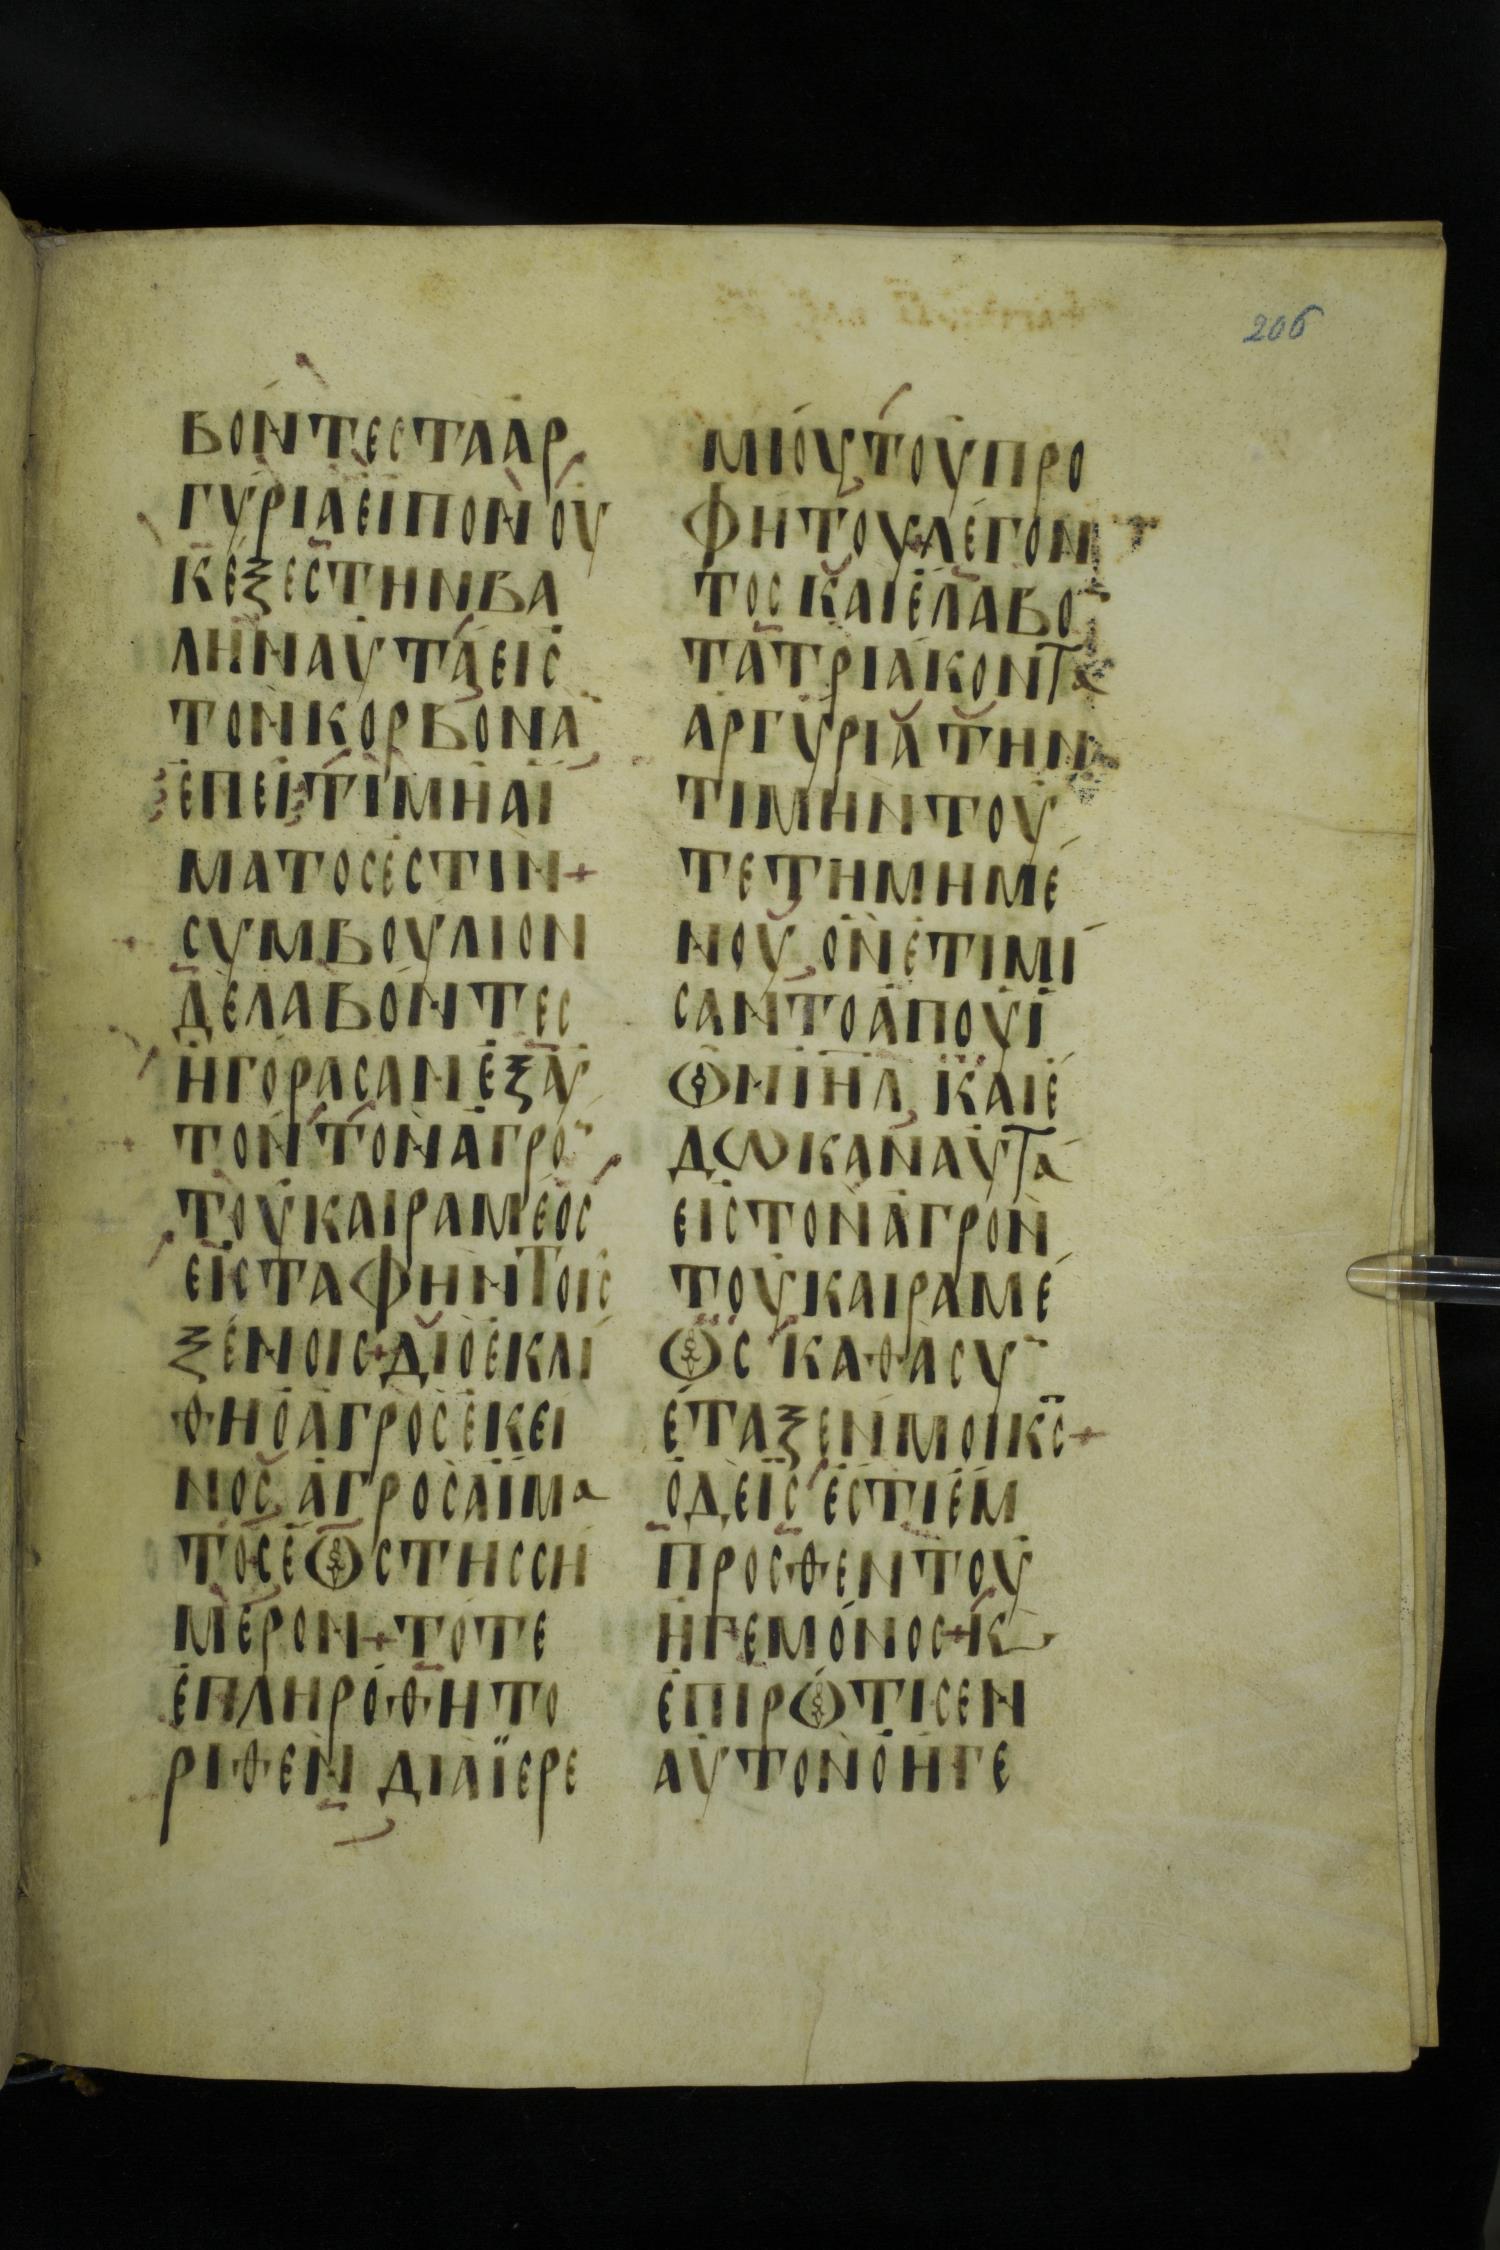 206
ΒΟΝΤΕСΤΑΑΡ
ΓΥΡΙΑΕΙΠΟΝΟΥ
ΚΕΞΕСΤΗΝΒΑ
ΛΗΝΑΥΤΑΕΙС
ΤΟΝΚΟΡΒΟΝΑ
ΕΠΕΙΤΙΜΗΑΙ
ΜΑΤΟСΕСΤΙΝ+
СΥΜΒΟΥΛΙΟΝ
ΔΕΛΑΒΟΝΤΕС
ΗΓΟΡΑСΑΝΕΞΑΥ
ΤΟΝΤΟΝΑΓΡΟ̅
ΤΟΥΚΑΙΡΑΜΕΟС
ΕΙСΤΑΦΗΝΤΟΙС
ΞΕΝΟΙС+ΔΙΟΕΚΛΙ
ΘΗΟΑΓΡΟСΕΚΕΙ
ΝΟС ΑΓΡΟСΑΙΜΑ
ΤΟСΕΩСΤΗССΗ
ΜΕΡΟΝ+ΤΟΤΕ
ΕΠΛΗΡΟΘΗΤΟ
ΡΙΘΕΝ ΔΙΑΪΕΡΕ
ΜΙΟΥΤΟΥΠΡΟ
ΦΗΤΟΥΛΕΓΟΝ
ΤΟС ΚΑΙΕΛΑΒΟ̅
ΤΑΤΡΙΑΚΟΝΤΑ
ΑΡΓΥΡΙΑ ΤΗΝ
ΤΙΜΗΝΤΟΥ
ΤΕΤΗΜΗΜΕ
ΝΟΥ ΟΝΕΤΙΜΙ
СΑΝΤΟΑΠΟΥΙ
ΩΝΙΗΛ ΚΑΙΕ
ΔΩΚΑΝΑΥΤΑ
ΕΙСΤΟΝΑΓΡΟΝ
ΤΟΥΚΑΙΡΑΜΕ
ΩС ΚΑΘΑСΥ̅
ΕΤΑΞΕΝΜΟΙΚ̅С̅+
ΟΔΕΙС ΕСΤΙΕΜ
ΠΡΟСΘΕΝΤΟΥ
ΗΓΕΜΟΝΟС+Κ
ΕΠΙΡΩΤΙСΕΝ
ΑΥΤΟΝΟΗΓΕ